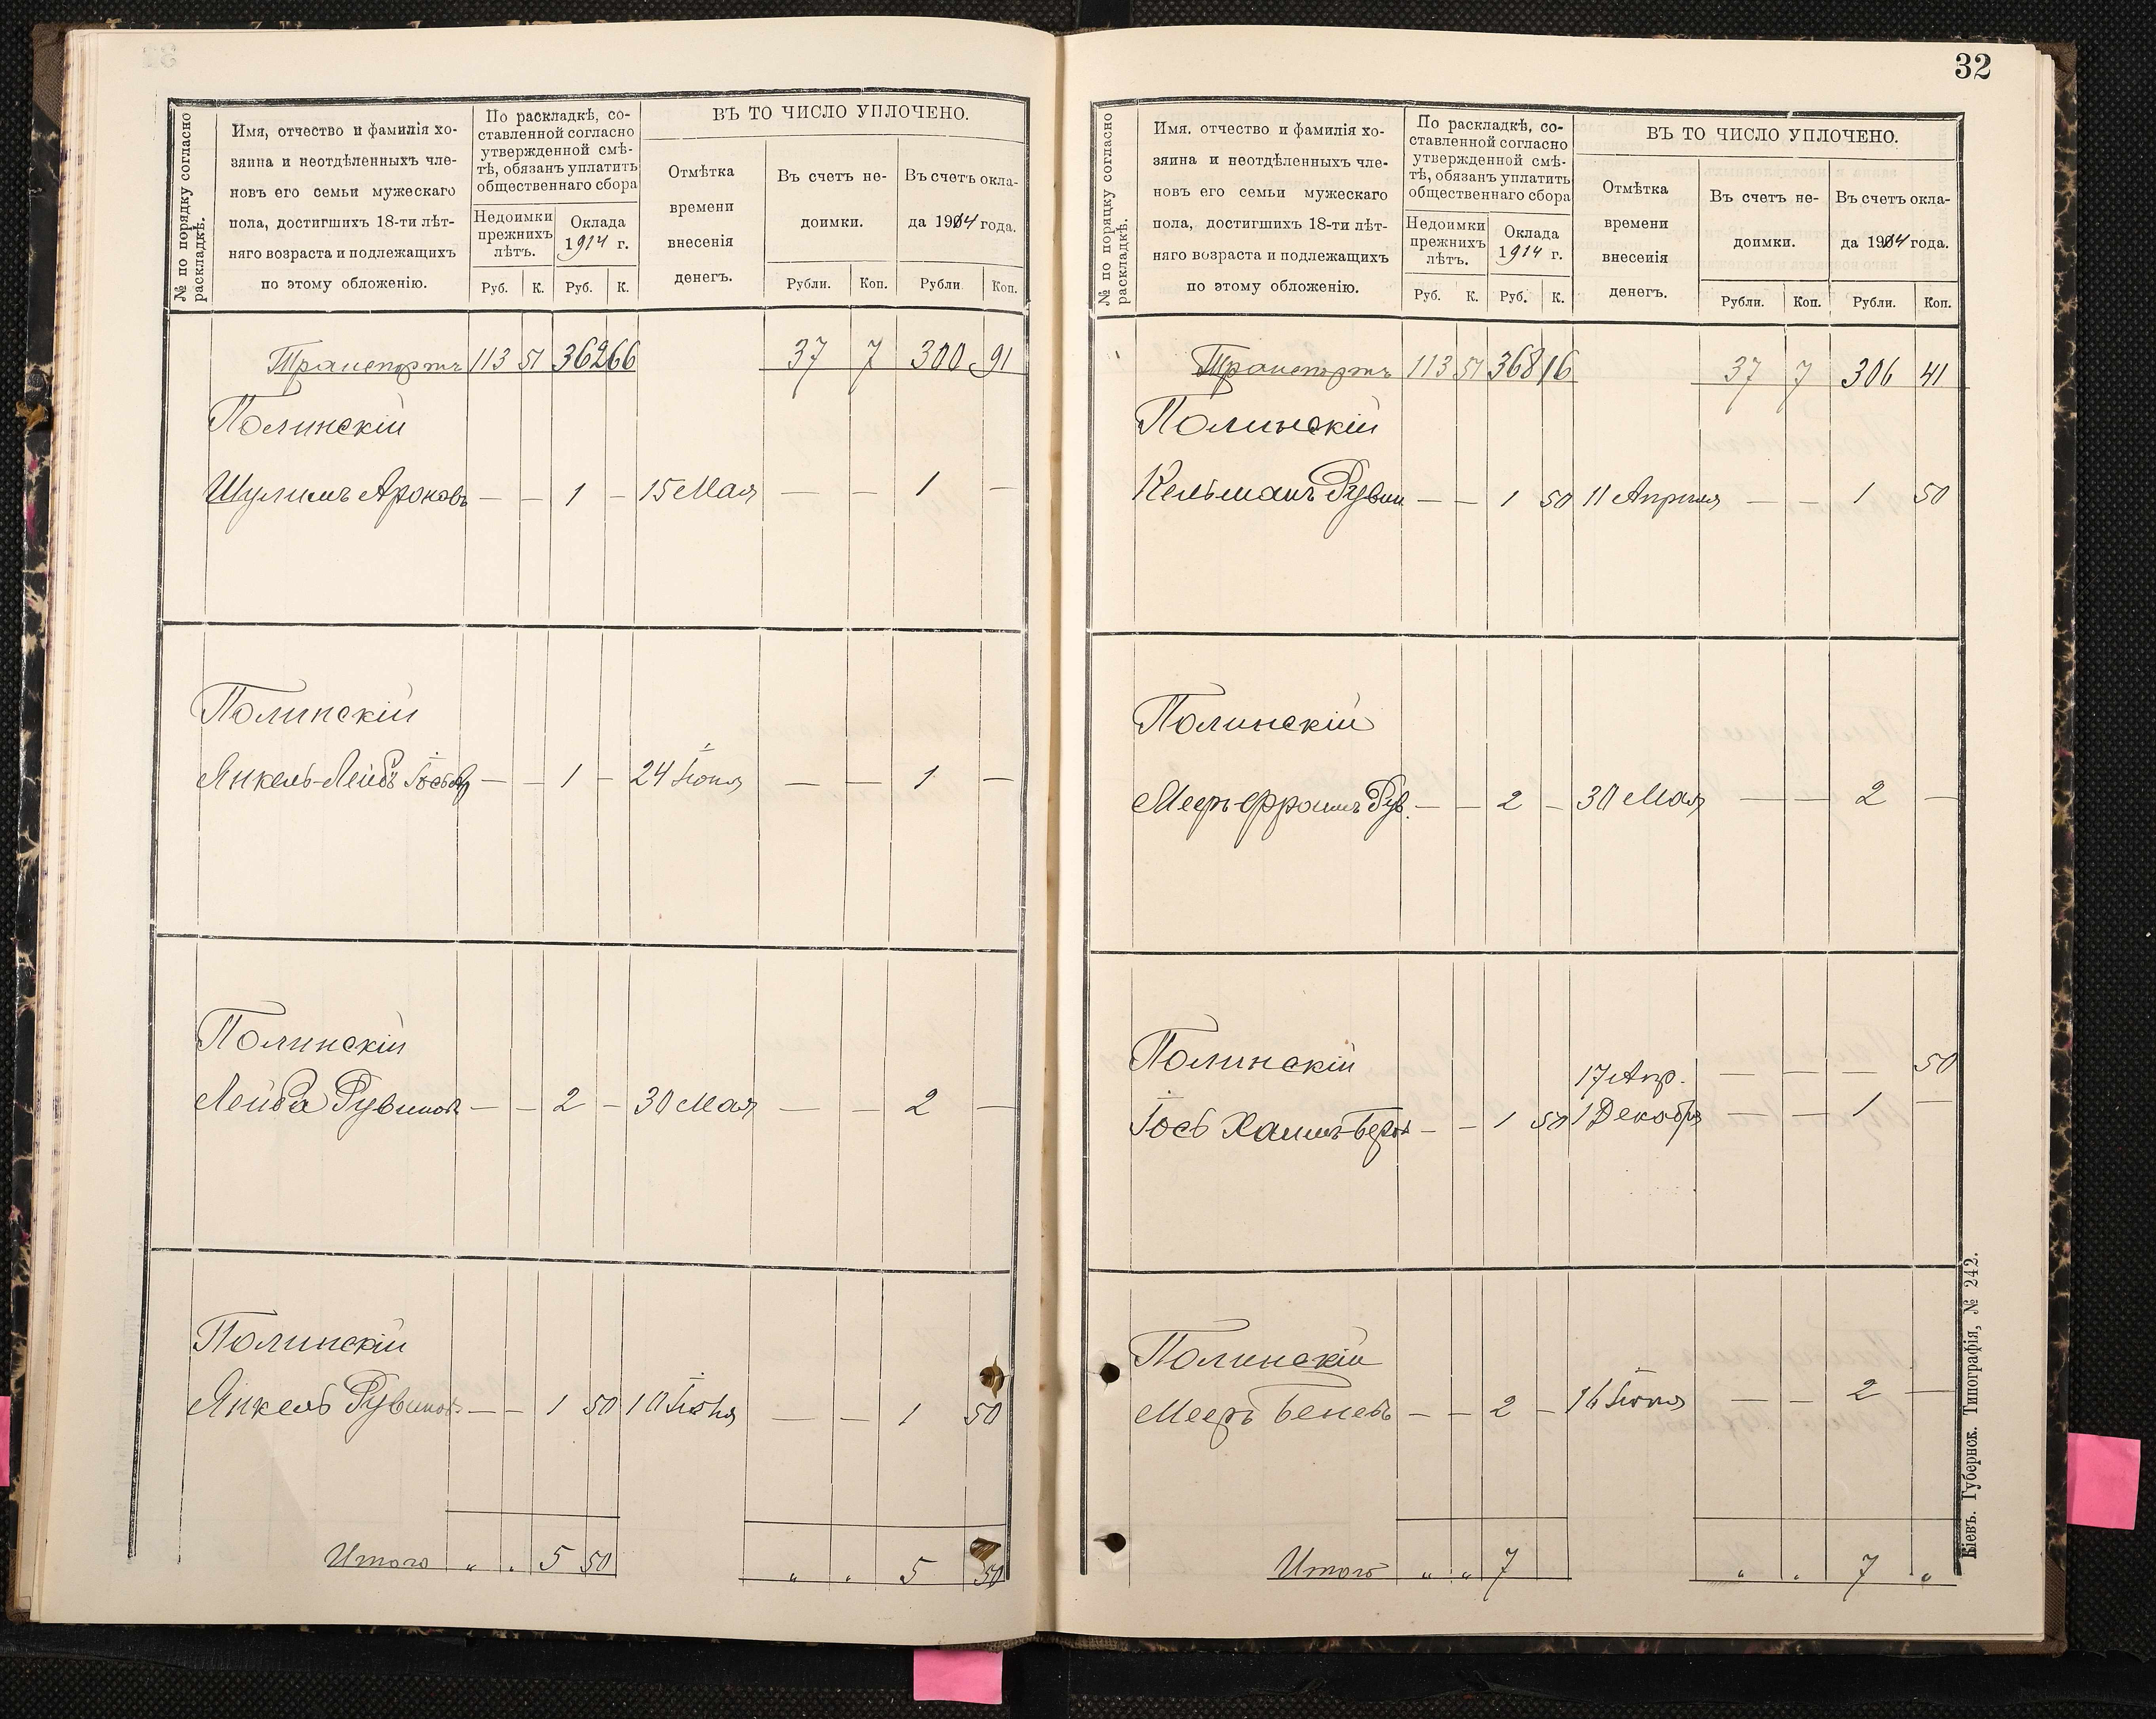 № по порядку согласно
раскладкѣ.
Имя, отчество и фамилія хо-
зяина и неотдѣленныхъ чле-
новъ его семьи мужескаго
пола, достигшихъ 18-ти лѣт-
няго возраста и подлежащихъ
по этому обложенію.
По раскладкѣ, со-
ставленной согласно
утвержденной смѣ-
тѣ, обязанъ уплатить
общественнаго сбора
Недоимки
прежнихъ
лѣтъ.
Оклада
1914 г.
Руб. К. Руб. К.
ВЪ ТО ЧИСЛО УПЛОЧЕНО.
Отмѣтка
времени
внесенія
денегъ.
Въ счетъ не-
доимки.
Въ счетъ окла-
да 1914 года.
Рубли. Коп. Рубли. Коп.
Транспортъ 113 51 362 66 37 7 300 91
Полинскій
Шулимъ Ароновъ — — 1 — 15 Мая — — 1 —
Полинскій
Янкель-Лейбъ — — 1 — 24 Іюня — — 1 —
Полинскій
Лейба Рувинов — — 2 — 30 Мая — — 2 —
Полинскій
Янкель Рувинов. — — 1 50 10 Іюня — — 1 50
Итого „ „ 5 50 „ „ 5 50
32
№ по порядку согласно
раскладкѣ.
Имя, отчество и фамилія хо-
зяина и неотдѣленныхъ чле-
новъ его семьи мужескаго
пола, достигшихъ 18-ти лѣт-
няго возраста и подлежащихъ
по этому обложенію.
По раскладкѣ, со-
ставленной согласно
утвержденной смѣ-
тѣ, обязанъ уплатить
общественнаго сбора
Недоимки
прежнихъ
лѣтъ.
Оклада
1914 г.
Руб. К. Руб. К.
ВЪ ТО ЧИСЛО УПЛОЧЕНО.
Отмѣтка
времени
внесенія
денегъ.
Въ счетъ не-
доимки.
Въ счетъ окла-
да 1914 года.
Рубли. Коп. Рубли. Коп.
Транспортъ 113 51 368 16 37 7 306 41
Полинскій
Кельманъ Рувин. — — 1 50 11 Апрѣля — — 1 50
Полинскій
Мееръ-Фроимъ Рув. — — 2 — 30 Мая — — 2 —
Полинскій
17 Апр. — — — 50
Іось Хаимъ-Берк — — 1 50 1 Декабря — — 1 —
Полинскій
Мееръ Беневъ — — 2 — 16 Іюня — — 2 —
Итого „ „ 7 „ „ 7 „
Кіевъ. Губернск. Типографія, № 242.